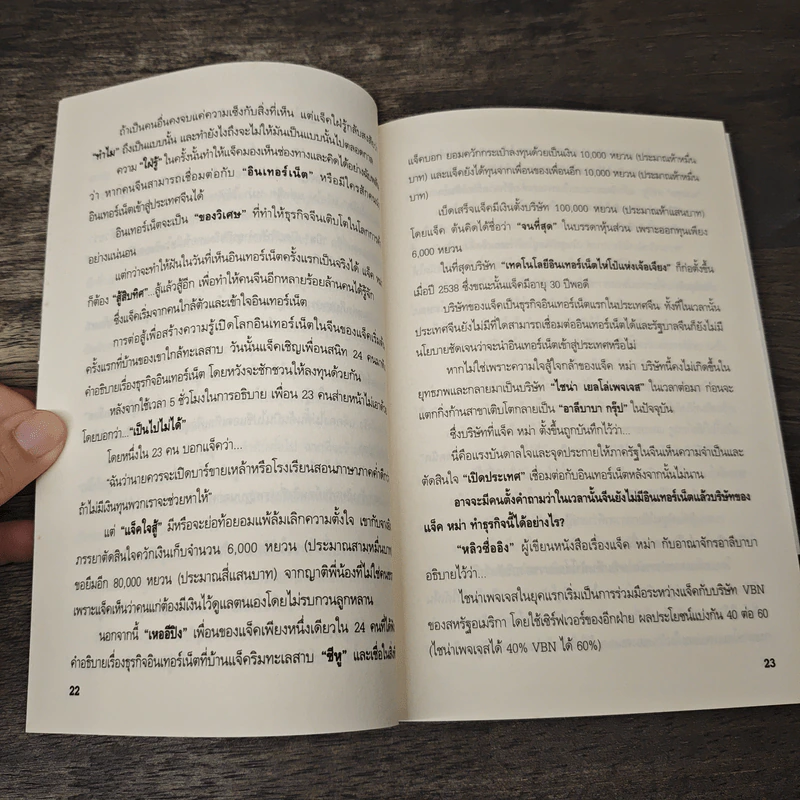 ถ้าเป็นคนอื่นคงจบแค่ความเซ็งกับสิ่งที่เห็น แต่แจ็คใฝ่รู้กลับสงสัยว่า
"ทำไม" ถึงเป็นแบบนั้น และทำยังไงถึงจะไม่ให้มันเป็นแบบนั้นไปตลอดกาล
ความ "ใฝ่รู้" ในครั้งนั้นทำให้แจ็คมองเห็นช่องทางและคิดได้อย่าง
ว่า หากคนจีนสามารถเชื่อมต่อกับ "อินเทอร์เน็ต" หรือมีใครสักคน
อินเทอร์เน็ตเข้าสู่ประเทศจีนได้
อินเทอร์เน็ตจะเป็น "ของวิเศษ" ที่ทำให้ธุรกิจจีนเติบโตในโลก
อย่างแน่นอน
แต่กว่าจะทำให้ฝันในวันที่เห็นอินเทอร์เน็ตครั้งแรกเป็นจริงได้ แจ็ค
ก็ต้อง "สู้สิบทิศ"...สู้แล้วสู้อีก เพื่อทำให้คนจีนอีกหลายร้อยล้านคนได้รู้จัก
ซึ่งแจ็คเริ่มจากคนใกล้ตัวและเข้าใจอินเทอร์เน็ต
การต่อสู้เพื่อสร้างความรู้เปิดโลกอินเทอร์เน็ตในจีนของแจ็คเริ่มต้น
ครั้งแรกที่บ้านของเขาใกล้ทะเลสาบ วันนั้นแจ็คเชิญเพื่อนสนิท 24 คนมาฟัง
คำอธิบายเรื่องธุรกิจอินเทอร์เน็ต โดยหวังจะชักชวนให้ลงทุนด้วยกัน
หลังจากใช้เวลา 5 ชั่วโมงในการอธิบาย เพื่อน 23 คนส่ายหน้าไม่เอาด้วย
โดยบอกว่า..."เป็นไปไม่ได้"
โดยหนึ่งใน 23 คน บอกแจ็คว่า...
"ฉันว่านายควรจะเปิดบาร์ขายเหล้าหรือโรงเรียนสอนภาษาภาคค่ำดีกว่า
ถ้าไม่มีเงินทุนพวกเราจะช่วยหาให้"
แต่ "แจ็คใจสู้" มีหรือจะย่อท้อยอมแพ้ล้มเลิกความตั้งใจ เขากับ
ภรรยาตัดสินใจควักเงินเก็บจำนวน 6,000 หยวน (ประมาณสามหมื่นบาท)
ขอยืมอีก 80,000 หยวน (ประมาณสี่แสนบาท) จากญาติพี่น้องที่ไม่ใช่คน
เพราะแจ็คเห็นว่าคนแก่ต้องมีเงินไว้ดูแลตนเองโดยไม่รบกวนลูกหลาน
นอกจากนี้ "เหออีปิง" เพื่อนของแจ็คเพียงหนึ่งเดียวใน 24 คนที่ได้ฟัง
คำอธิบายเรื่องธุรกิจอินเทอร์เน็ตที่บ้านแจ็คริมทะเลสาบ "ซีหู" และเชื่อใน
22
แจ็คบอก ยอมควักกระเป๋าลงทุนด้วยเป็นเงิน 10,000 หยวน (ประมาณห้าหมื่น
บาท) และแจ็คยังได้ทุนจากเพื่อนของเพื่อนอีก 10,000 หยวน (ประมาณห้าหมื่น
บาท)
เบ็ดเสร็จแจ็คมีเงินตั้งบริษัท 100,000 หยวน (ประมาณห้าแสนบาท)
โดยแจ็ค ต้นคิดได้ชื่อว่า "จนที่สุด" ในบรรดาหุ้นส่วน เพราะออกทุนเพียง
6,000 หยวน
ในที่สุดบริษัท "เทคโนโลยีอินเทอร์เน็ตไห่โป๋แห่งเจ้อเจียง" ก็ก่อตั้งขึ้น
เมื่อปี 2538 ซึ่งขณะนั้นแจ็คมีอายุ 30 ปีพอดี
บริษัทของแจ็คเป็นธุรกิจอินเทอร์เน็ตแรกในประเทศจีน ทั้งที่ในเวลานั้น
ประเทศจีนยังไม่มีที่ใดสามารถเชื่อมต่ออินเทอร์เน็ตได้และรัฐบาลจีนก็ยังไม่มี
นโยบายชัดเจนว่าจะนำอินเทอร์เน็ตเข้าสู่ประเทศหรือไม่
หากไม่ใช่เพราะความใจสู้ใจกล้าของแจ็ค หม่า บริษัทนี้คงไม่เกิดขึ้นใน
ยุทธภพและกลายมาเป็นบริษัท "ไชน่า เยลโล่เพจเจส" ในเวลาต่อมา ก่อนจะ
แตกกิ่งก้านสาขาเติบโตกลายเป็น "อาลีบาบา กรุ๊ป" ในปัจจุบัน
ซึ่งบริษัทที่แจ็ค หม่า ตั้งขึ้นถูกบันทึกไว้ว่า...
นี่คือแรงบันดาลใจและจุดประกายให้ภาครัฐในจีนเห็นความจำเป็นและ
ตัดสินใจ "เปิดประเทศ" เชื่อมต่อกับอินเทอร์เน็ตหลังจากนั้นไม่นาน
อาจจะมีคนตั้งคำถามว่าในเวลานั้นจีนยังไม่มีอินเทอร์เน็ตแล้วบริษัทของ
แจ็ค หม่า ทำธุรกิจนี้ได้อย่างไร?
"หลิวซื่ออิง" ผู้เขียนหนังสือเรื่องแจ็ค หม่า กับอาณาจักรอาลีบาบา
อธิบายไว้ว่า...
ไชน่าเพจเจสในยุคแรกเริ่มเป็นการร่วมมือระหว่างแจ็คกับบริษัท VBN
ของสหรัฐอเมริกา โดยใช้เซิร์ฟเวอร์ของอีกฝ่าย ผลประโยชน์แบ่งกัน 40 ต่อ 60
(ไชน่าเพจเจสได้ 40% VBN ได้ 60%)
23